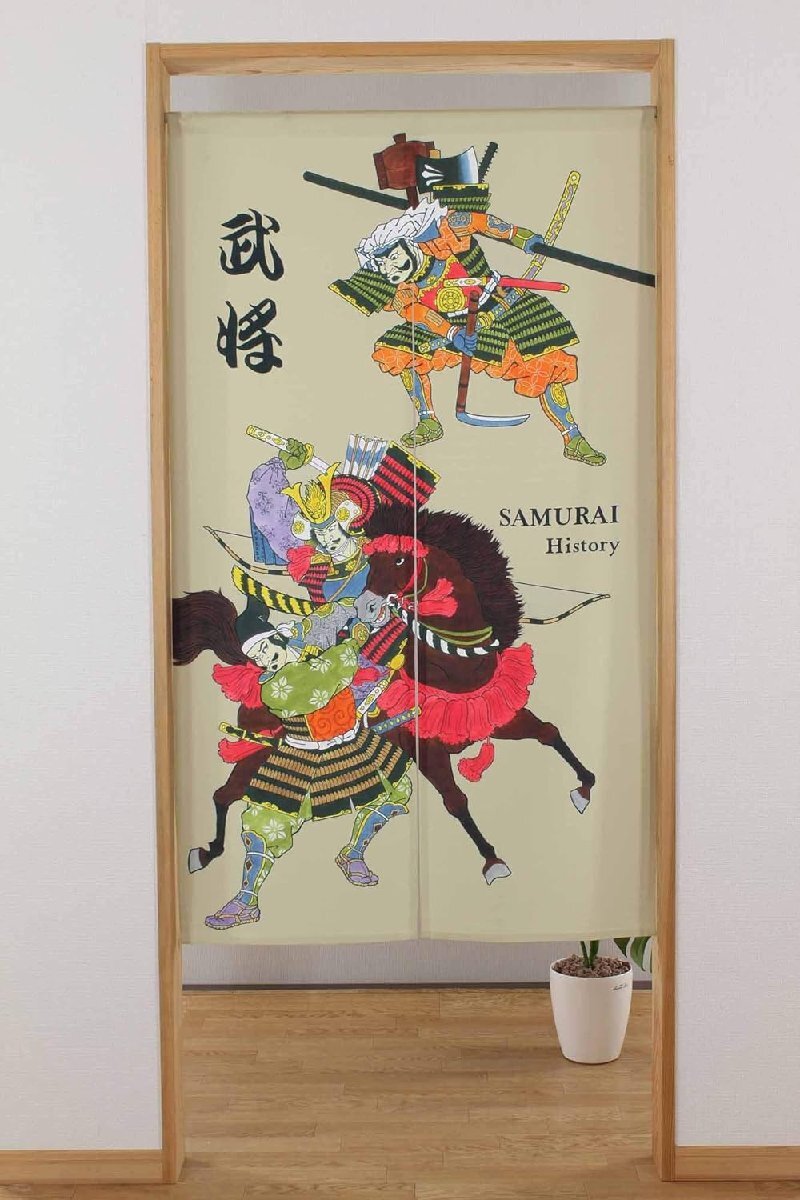 武将
SAMURAI
History